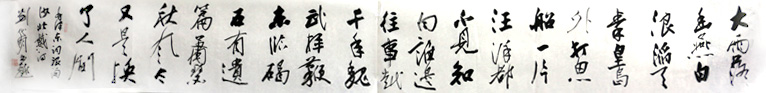 大雨落
幽燕白
浪滔天
秦皇島
外打魚
船一片
汪洋都
不見知
向誰邊
往事越
千年魏
武揮鞭
东临碣
石有遺
篇蕭瑟
秋風今
又是換
了人间
毛泽东词浪淘
沙北戴河